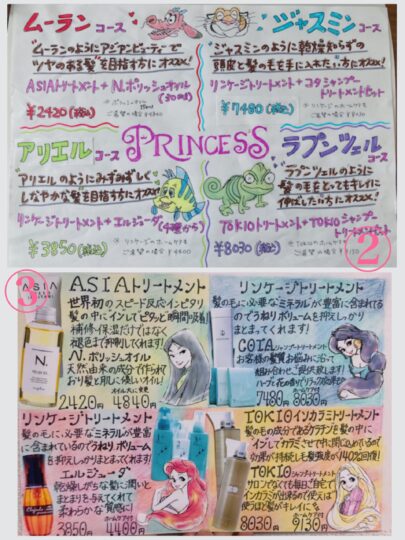 ムーランコース
ムーランのようにアジアンビューティーで
ツヤのある髪を目指す方にオススメ!
ASIAトリートメント+N.ポリッシュオイル
(30ml)
¥2420(税込)
ジャスミンコース
ジャスミンのように乾燥知らずの
頭皮と髪の毛を手に入れたい方にオススメ!
リンケージトリートメント+コタシャンプー
トリートメントセット
¥7480(税込)
PRINCESS
アリエルコース
アリエルのようにみずみずしく
しなやかな髪を目指す方にオススメ!
リンケージトリートメント+エルジューダ
(4種から)
¥3850(税込)
ラプンツェルコース
ラプンツェルのように
髪の毛をとってもキレイに
伸ばしたい方にオススメ!
TOKIOトリートメント+TOKIOシャンプー
トリートメントセット
¥8030(税込)
2
ASIA
ASIAトリートメント
世界初のスピード反応インピタリ
髪の中にインしてピタッと瞬間吸着!
補修・保湿だけではなく
褪色まで抑制してくれます!
N.ポリッシュオイル
天然由来の成分で作られて
おり髪と肌に優しいオイル!
2420円 4840円
N.
リンケージトリートメント
髪の毛に必要なミネラルが豊富に含まれている
のでうねりやボリュームを抑えしっかり
まとまってくれます!
お客様の髪質、お悩みに沿って
組み合わせ、ご提供致します!
7480円 8030円
リンケージトリートメント
髪の毛に必要なミネラルが豊富
に含まれているのでうねりやボリューム
を抑えしっかりまとまってくれます!
エルジューダ
乾燥しがちな髪に潤いと
まとまりを与えてくれて
柔らかな質感に!
ホームケア付
3850円 4400円
TOKIOインカラミトリートメント
髪の毛の成分であるケラチンを髪の中に
インしてカラミさせて中に閉じ込めているので
効果が持続し毛髪強度が140%回復!
TOKIOシャンプートリートメント
サロンでなくても毎日ご自宅で
インカラミが出来るので使えば
使うほど髪がキレイに
ホームケア付
8030円 9130円